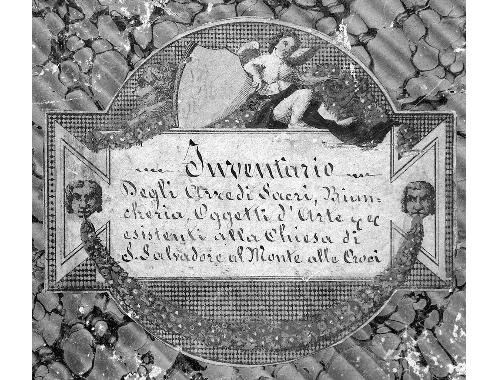 Inventario
Degli Arredi Sacri, Bian-
cheria, Oggetti d'Arte
esistenti alla Chiesa di
S. Salvadore al Monte alle Croci